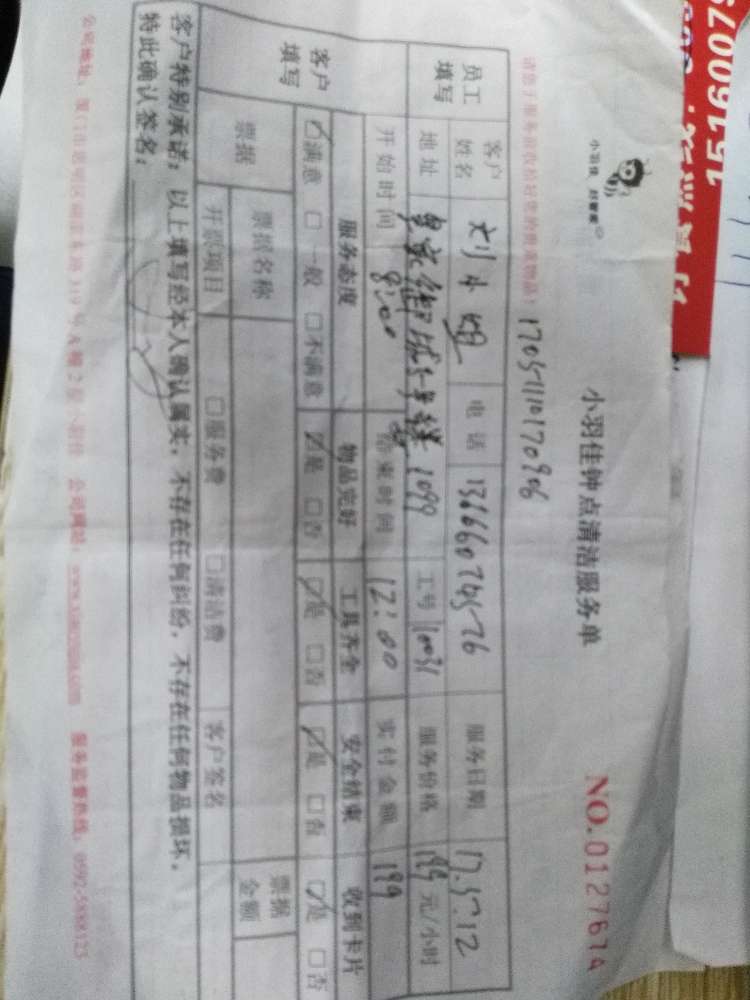 1516007
小羽佳 好管家
小羽佳钟点清洁服务单
NO.0127674
17051110170906
请您于服务前收拾好您的贵重物品！
员工填写
客户姓名 刘小姐 电话 13666074526 服务日期 17.5.12
地址 1099 工号 10031 服务价格 199 元/小时
开始时间 8:00 结束时间 12:00 实付金额 199
客户填写
服务态度 物品完好 工具齐全 安全结束 收到卡片
☑满意 □一般 □不满意 ☑是 □否 ☑是 □否 ☑是 □否 ☑是 □否
票据 票据名称 票据金额
开票项目 □服务费 □清洁费 客户签名
客户特别承诺：以上填写经本人确认属实，不存在任何纠纷，不存在任何物品损坏，
特此确认签名：
公司地址：厦门市思明区 319号 2 公司网站： 服务监督热线：0592-5888123